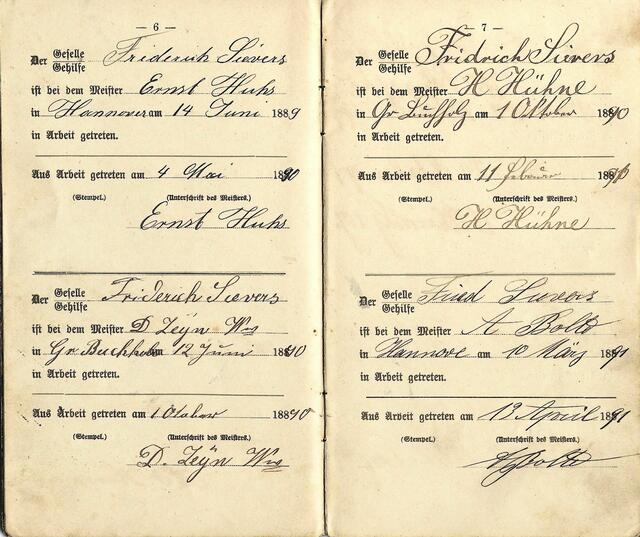 — 6 —
Der Geselle
Gehilfe Friderich Sievers
ist bei dem Meister Ernst Huhs
in Hannover am 14 Juni 1889
in Arbeit getreten.
Aus Arbeit getreten am 4 Mai 1890
(Stempel.) (Unterschrift des Meisters.)
Ernst Huhs
Der Geselle
Gehilfe Friderich Sievers
ist bei dem Meister D Zeyn Ww
in Gr. Buchholz am 12 Juni 1890
in Arbeit getreten.
Aus Arbeit getreten am 1 Otober 1890
(Stempel.) (Unterschrift des Meisters.)
D. Zeyn Ww
— 7 —
Der Geselle
Gehilfe Fridrich Sievers
ist bei dem Meister H Hühne
in Gr Buchholz am 1 Oktober 1890
in Arbeit getreten.
Aus Arbeit getreten am 11
(Stempel.) (Unterschrift des Meisters.)
H Hühne
Der Geselle
Gehilfe Fried Sievers
ist bei dem Meister A Bolte
in Hannove am 10 März 1891
in Arbeit getreten.
Aus Arbeit getreten am 13 April 1891
(Stempel.) (Unterschrift des Meisters.)
A Bolte